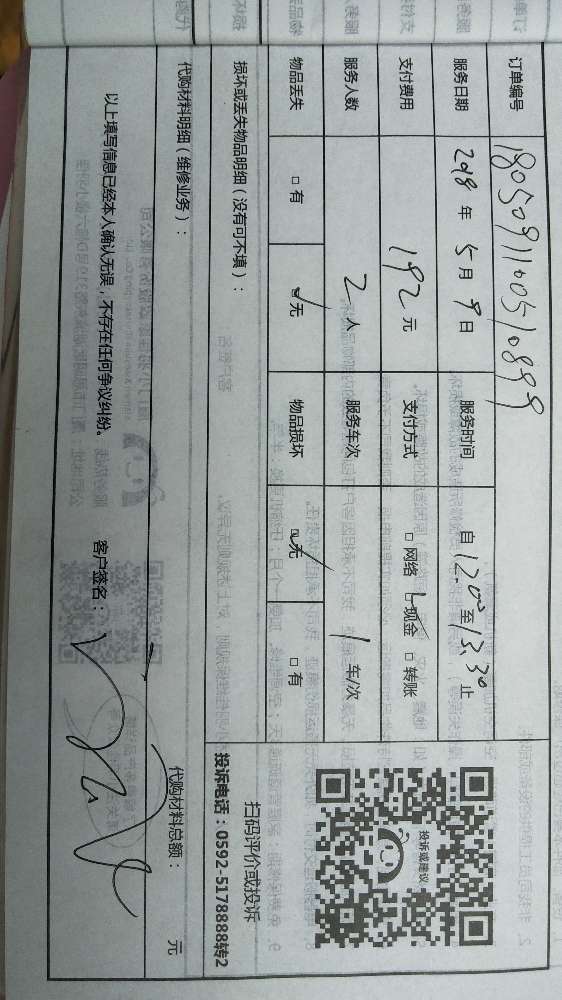 订单编号 1805091100510899
服务日期 2018 年 5 月 9 日 服务时间 自 12:00 至 13:30 止
支付费用 192 元 支付方式 □ 网络 ☑ 现金 □ 转账
服务人数 2 人 服务车次 1 车/次
物品丢失 □ 有 ☑ 无 物品损坏 ☑ 无 □ 有
投诉或建议
扫码评价或投诉
投诉电话：0592-5178888转2
损坏或丢失物品明细（没有可不填）：
代购材料明细（维修业务）： 代购材料总额： 元
以上填写信息已经本人确认无误，不存在任何争议纠纷。 客户签名：